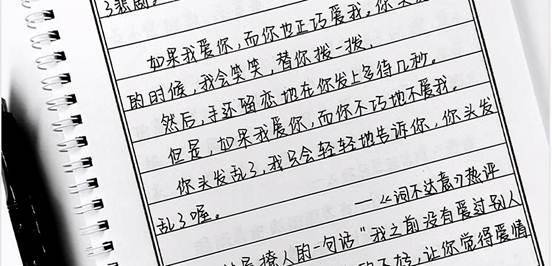 了悲剧。
如果我爱你,而你也正巧爱我。你头发
的时候,我会笑笑,替你拨一拨,
然后,手还留恋地在你发上多待几秒。
但是,如果我爱你,而你不巧地不爱我。
你头发乱了,我只会轻轻地告诉你,你头发
乱了喔。
——《词不达意》热评
最撩人的一句话“我之前没有爱过别人
不好,让你觉得爱情